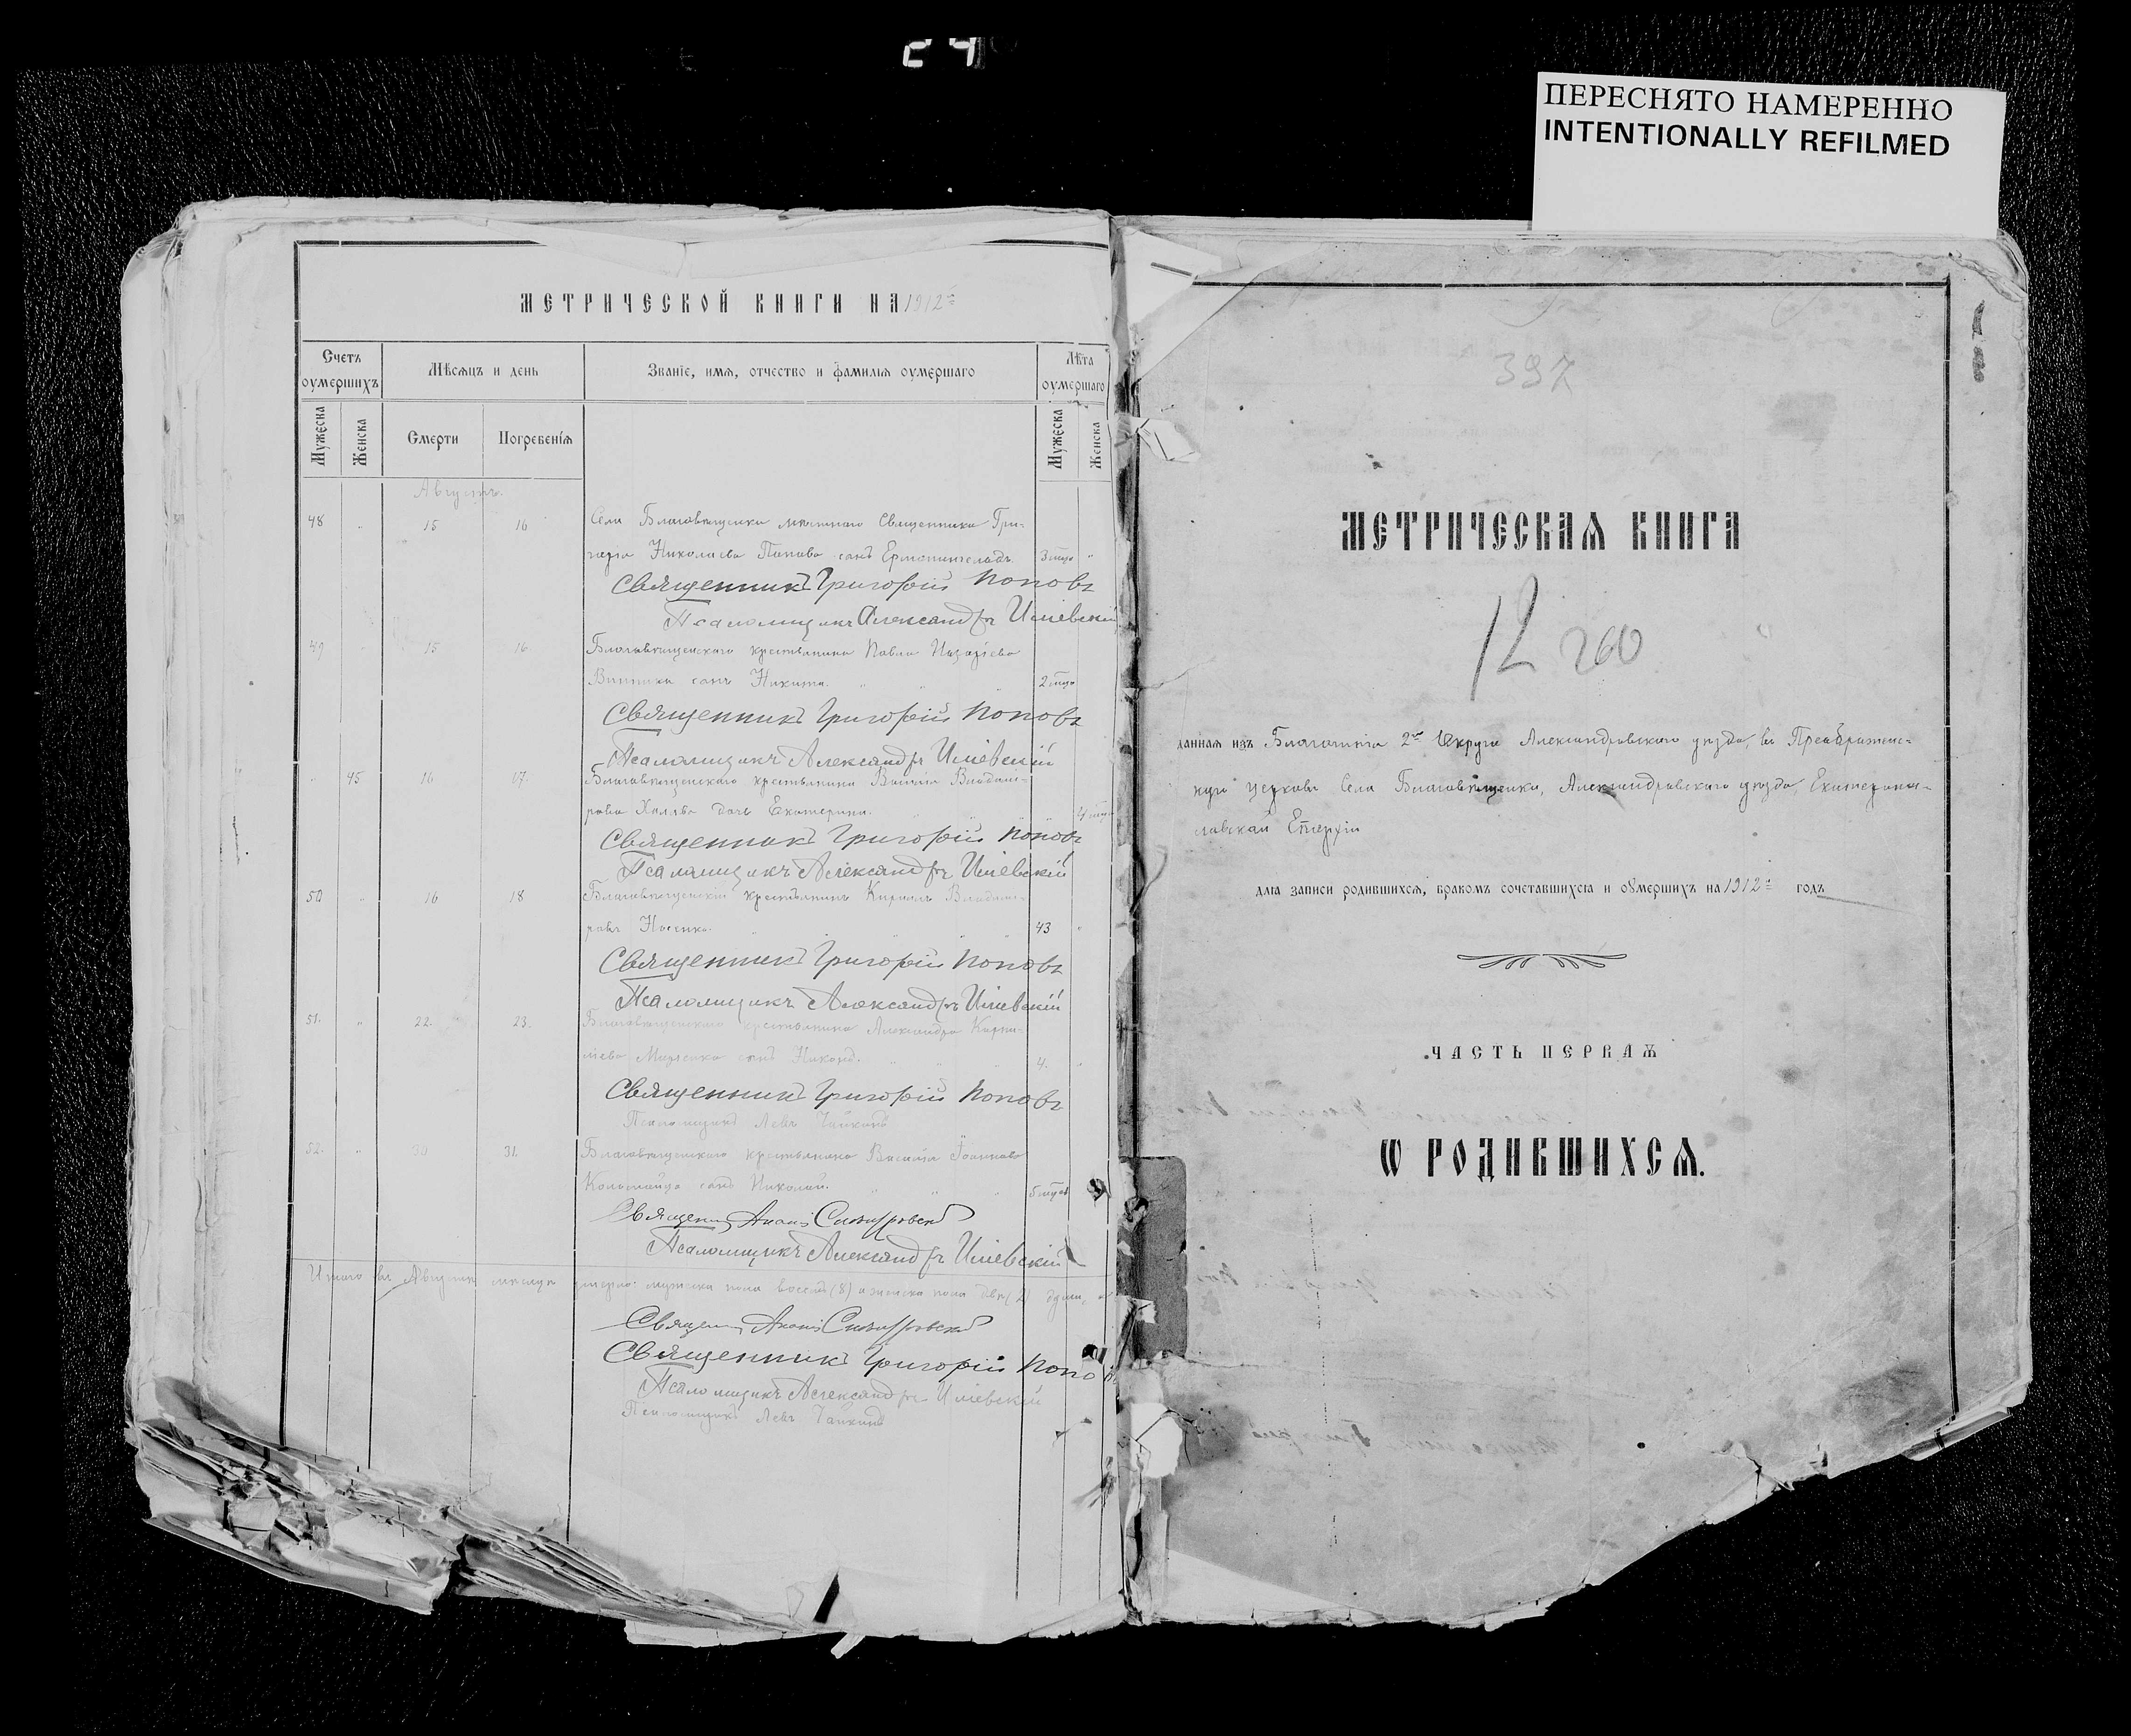 24
ПЕРЕСНЯТО НАМЕРЕННО
INTENTIONALLY REFILMED
МЕТРИЧЕСКОЙ КНИГИ НА 1912 г.
Счетъ оумершихъ
Мѣсяцъ и день
Званіе, имя, отчество и фамилія оумершаго
Лѣта оумершаго
Мужеска
Женска
Смерти
Погребенія
Мужеска
Женска
Августъ.
48 " 15 16 Села Благовѣщенки мѣстнаго Священника Гри-
горія Николаева Попова сынъ 3 мцо "
Священникъ Григорій Поповъ
Псаломщикъ Александръ
49 15 16 Благовѣщенскаго крестьянина Павла Назаріева
сынъ Никита. 2 мцо
Священникъ Григорій Поповъ
Псаломщикъ Александръ
" 45 16 17. Благовѣщенскаго крестьянина Владими-
рова Халява дочь Екатерина. 4 мцо
Священникъ Григорій Поповъ
Псаломщикъ Александръ
50 " 16 18 Благовѣщенскій крестьянинъ Кириллъ Владими-
ровъ Носенко. 43 "
Священникъ Григорій Поповъ
Псаломщикъ Александръ
51. " 22. 23. Благовѣщенскаго крестьянина Александра Корни-
ліева сынъ 4. "
Священникъ Григорій Поповъ
Псаломщикъ Левъ
52. " 30 31. Благовѣщенскаго крестьянина Василія Іоаннова
сынъ Николай. 5 мцев
Священ.
Псаломщикъ Александръ
Итого въ Августѣ мѣсяцѣ умерло: мужска пола восемь (8) и женска пола двѣ (2) души.
Священ.
Священникъ Григорій Поповъ
Псаломщикъ Александръ
Псаломщикъ Левъ
397
МЕТРИЧЕСКАЯ КНИГА
12 260
данная изъ Благочинія 2го Округа Александровскаго уѣзда, въ Преображенс-
кую церковь Села Благовѣщенки, Александровскаго уѣзда, Екатерино-
славской Епархіи
для записи родившихся, бракомъ сочетавшихся и оумершихъ на 1912 г. годъ
ЧАСТЬ ПЕРВАЯ
Ѡ РОДИВШИХСЯ.